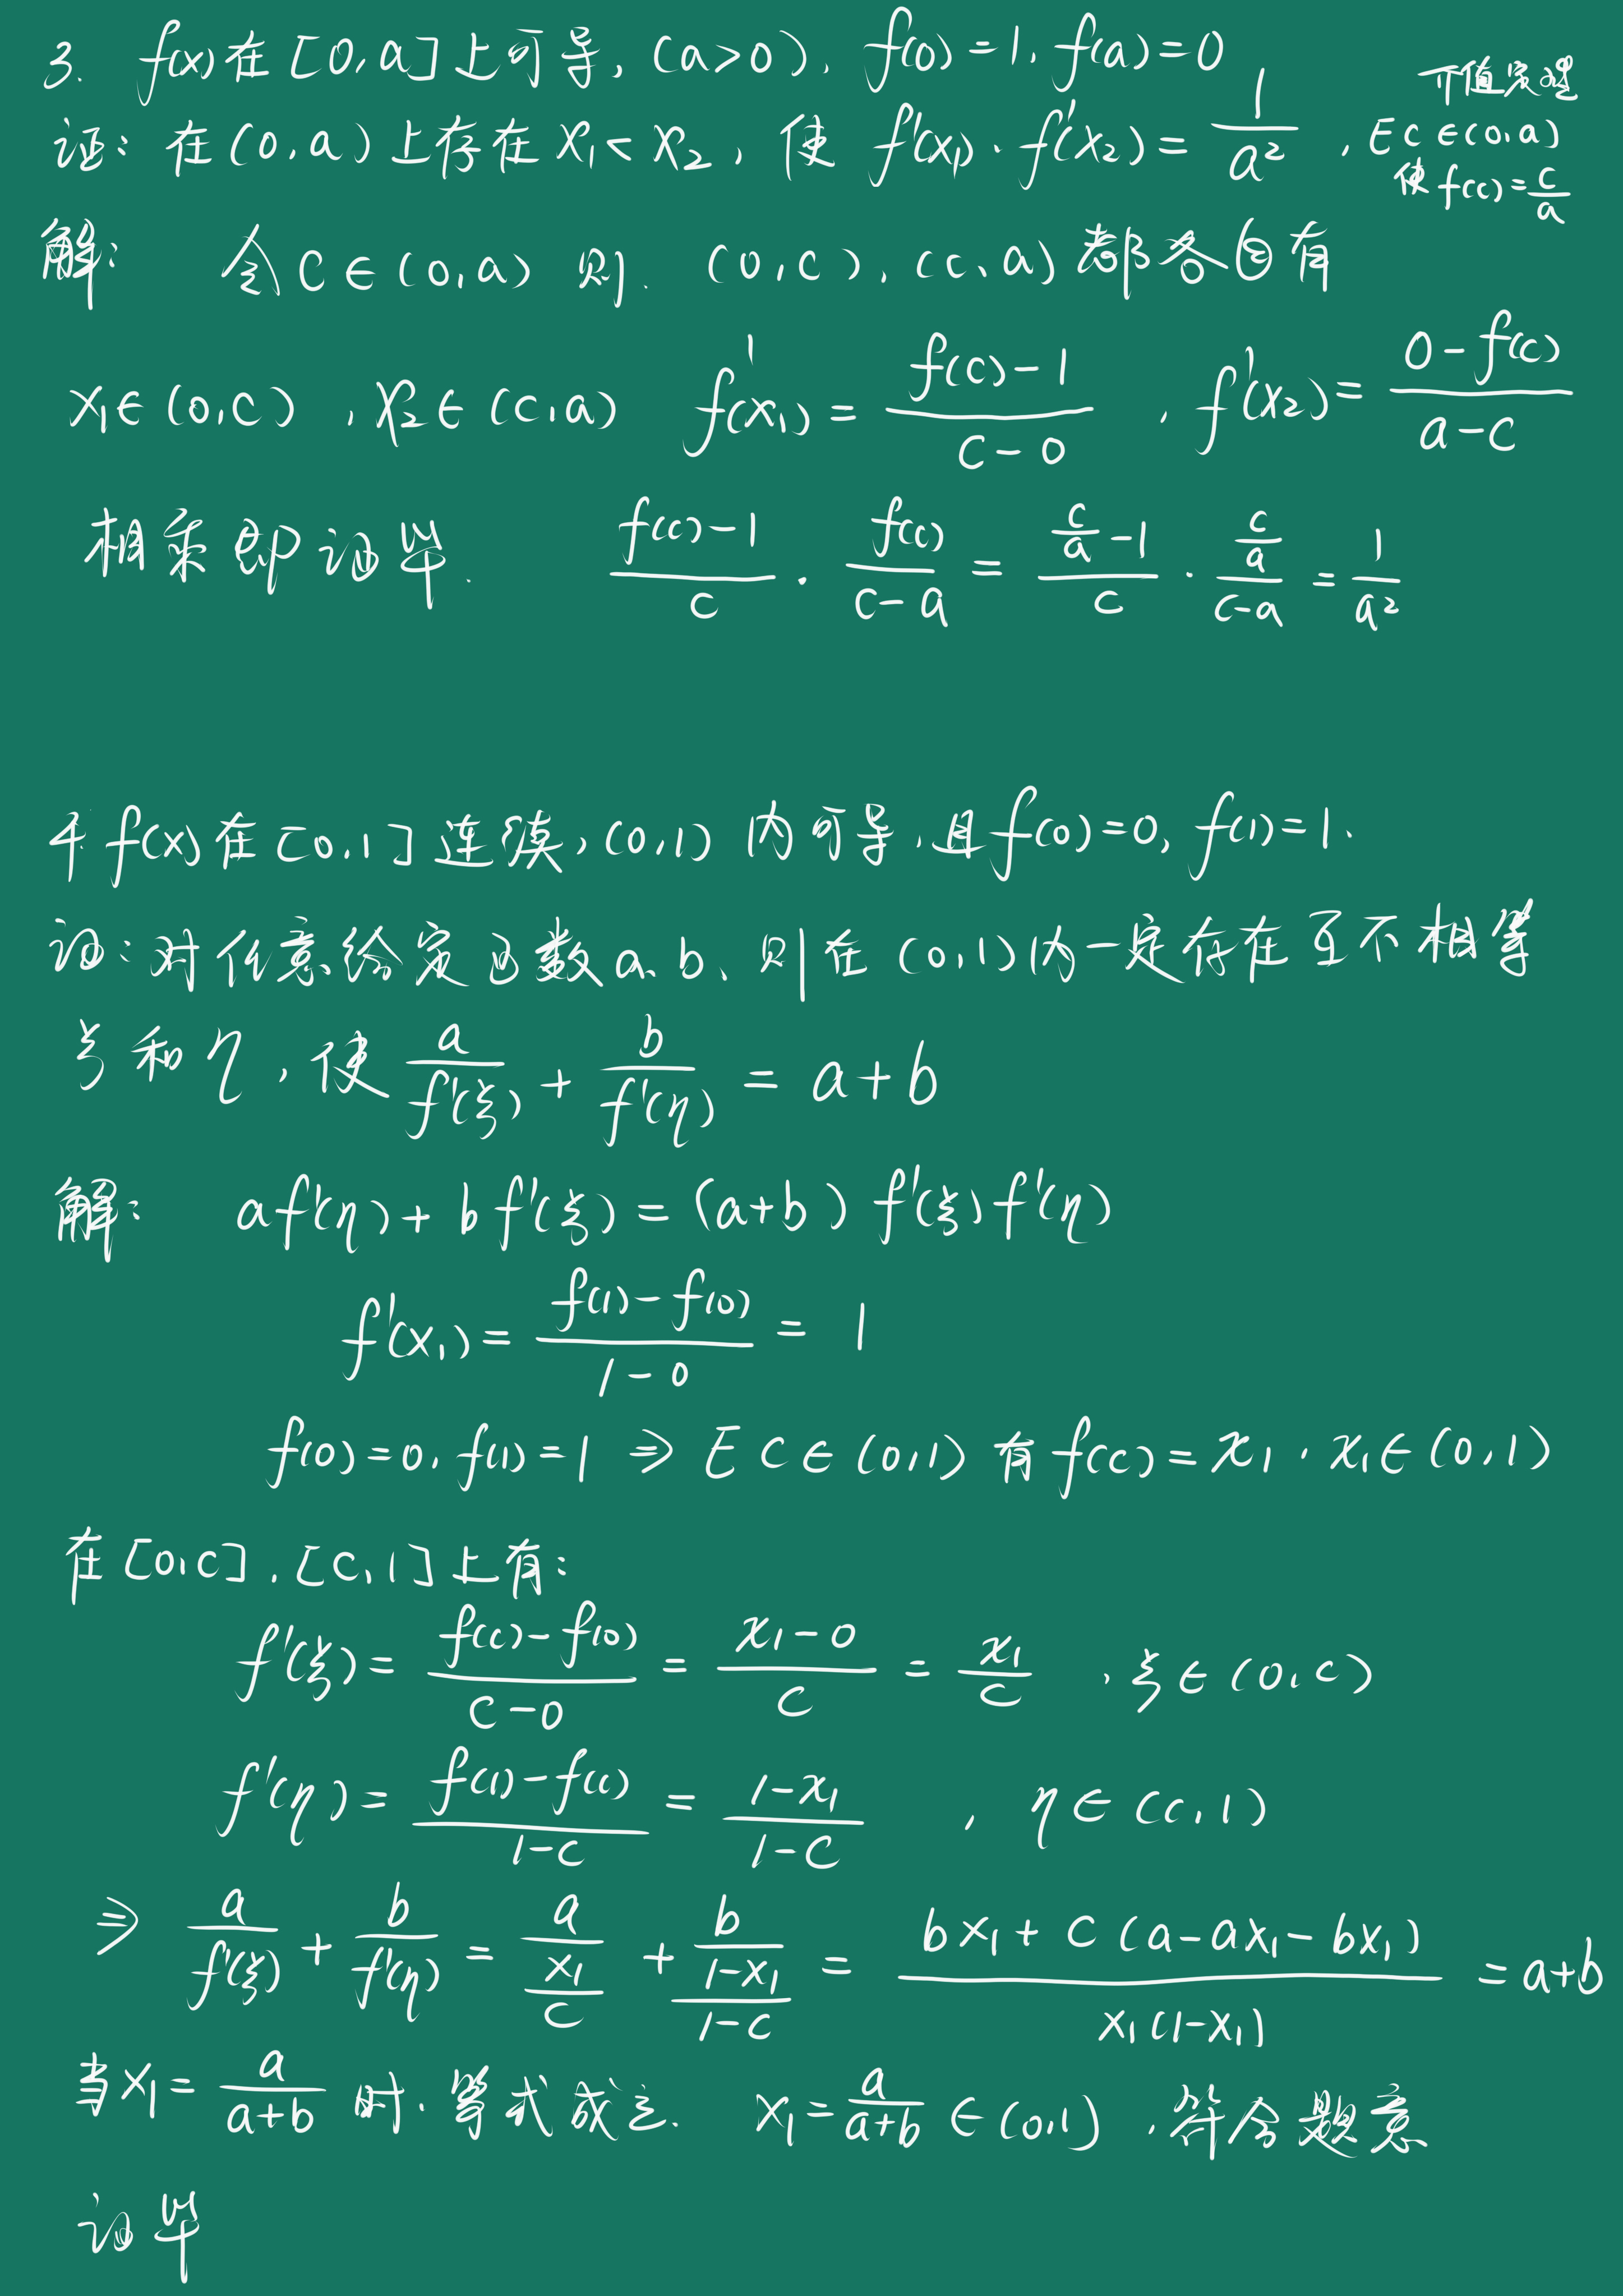 3. f(x)在[0,a]上可导,(a>0), f(0)=1, f(a)=0
介值定理
证: 在(0,a)上存在x₁<x₂, 使 f'(x₁)·f'(x₂)= 1/a² , E c∈(0,a)
使 f(c)=c/a
解: 令C∈(0,a) 则. (0,c), (c,a)都各自有
x₁∈(0,c) , x₂∈(c,a) f'(x₁)= (f(c)-1)/(c-0) , f'(x₂)= (0-f(c))/(a-c)
相乘即证毕. (f(c)-1)/c · f(c)/(c-a) = (c/a -1)/c · (c/a)/(c-a) = 1/a²
4. f(x)在[0,1]连续,(0,1)内可导,且f(0)=0, f(1)=1.
证:对任意给定正数a、b、则在(0,1)内一定存在互不相等
ξ和η, 使 a/f'(ξ) + b/f'(η) = a+b
解: af'(η)+bf'(ξ)=(a+b)f'(ξ)f'(η)
f'(x₁)= (f(1)-f(0))/(1-0) = 1
f(0)=0, f(1)=1 ⇒ E C∈(0,1) 有 f(c)=x₁ , x₁∈(0,1)
在[0,c],[c,1]上有:
f'(ξ)= (f(c)-f(0))/(c-0) = (x₁-0)/c = x₁/c , ξ∈(0,c)
f'(η)= (f(1)-f(c))/(1-c) = (1-x₁)/(1-c) , η∈(c,1)
⇒ a/f'(ξ) + b/f'(η) = a/(x₁/c) + b/((1-x₁)/(1-c)) = (bx₁+c(a-ax₁-bx₁))/(x₁(1-x₁)) = a+b
当x₁= a/(a+b) 时, 等式成立. x₁= a/(a+b) ∈(0,1) , 符合题意
证毕